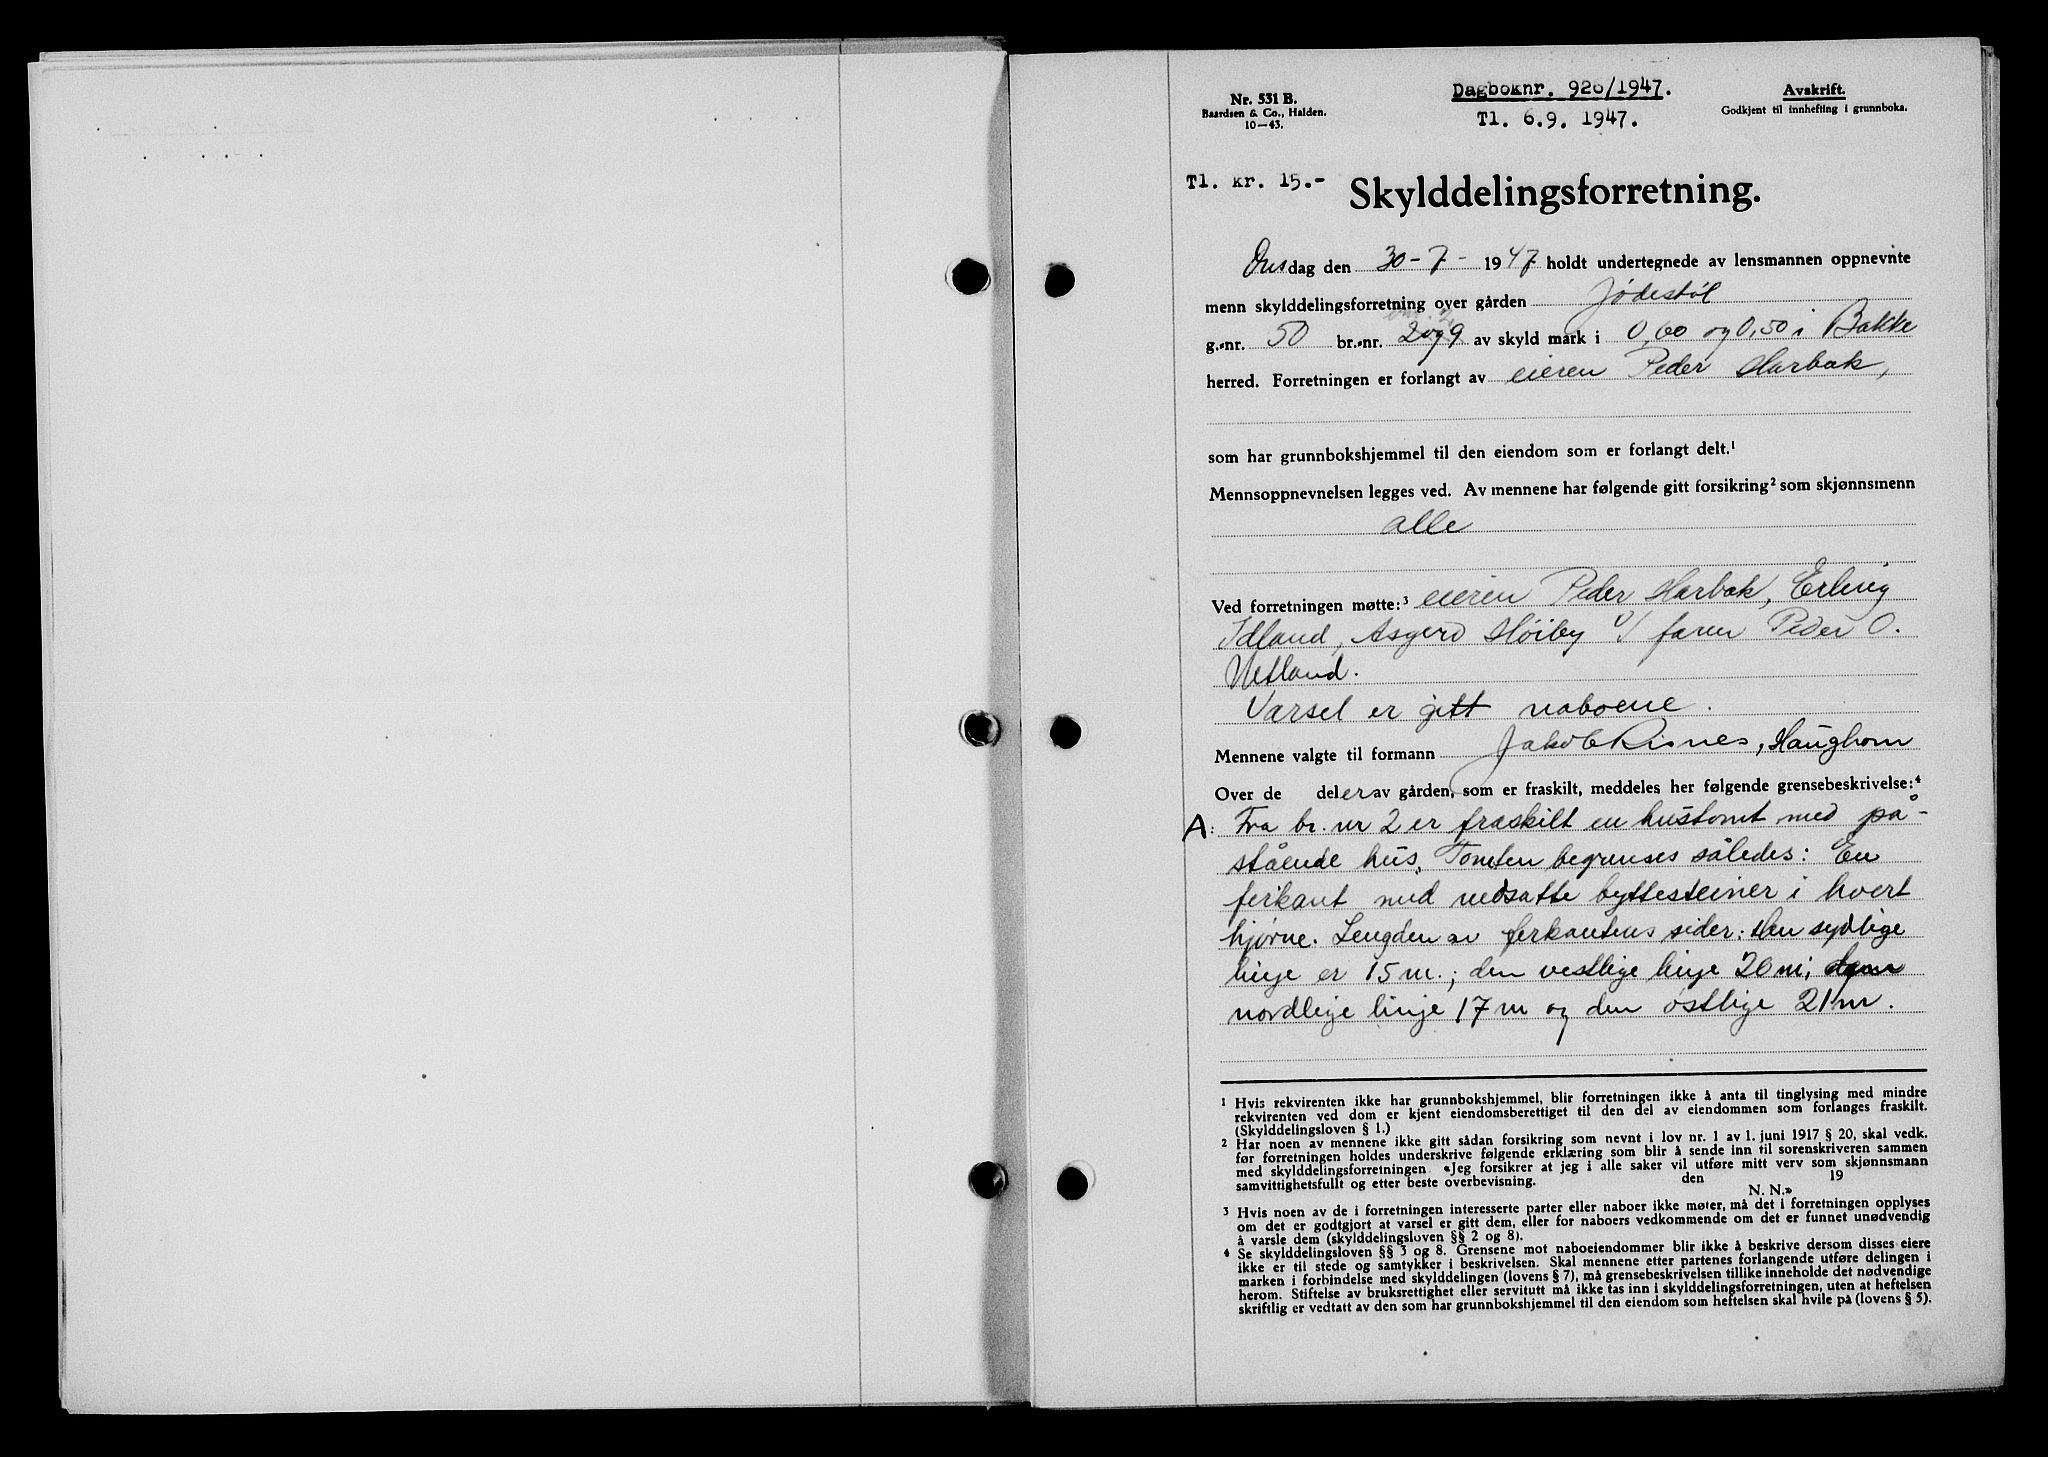 Nr. 531 B.
Baardsen & Co., Halden.
10—43.
Dagboknr. 926/1947.
Tl. 6.9. 1947.
Avskrift.
Godkjent til innhefting i grunnboka.
Tl. kr. 15.-
Skylddelingsforretning.
Onsdag den 30 - 7 - 1947 holdt undertegnede av lensmannen oppnevnte
menn skylddelingsforretning over gården Jødestøl
g.-nr. 50 br.-nr. 2 og 9 av skyld mark i 0,60 og 0,50 i Bakke
herred. Forretningen er forlangt av eieren Peder Harbak,
som har grunnbokshjemmel til den eiendom som er forlangt delt.¹
Mennsoppnevnelsen legges ved. Av mennene har følgende gitt forsikring² som skjønnsmenn
alle
Ved forretningen møtte:³ eieren Peder Harbak, Erling
Idland, Asgerd Høiby v/ faren Peder O.
Netland.
Varsel er gitt naboene.
Mennene valgte til formann Jakob Risnes, Haughom
Over de deler av gården, som er fraskilt, meddeles her følgende grensebeskrivelse:⁴
A: Fra br. nr 2 er fraskilt en hustomt med på-
stående hus. Tomten begrenses således: En
firkant med nedsatte byttesteiner i hvert
hjørne. Lengden av firkantens sider: Den sydlige
linje er 15 m.; den vestlige linje 20 m; den
nordlige linje 17 m og den østlige 21 m.
¹ Hvis rekvirenten ikke har grunnbokshjemmel, blir forretningen ikke å anta til tinglysing med mindre
rekvirenten ved dom er kjent eiendomsberettiget til den del av eiendommen som forlanges fraskilt.
(Skylddelingsloven § 1.)
² Har noen av mennene ikke gitt sådan forsikring som nevnt i lov nr. 1 av 1. juni 1917 § 20, skal vedk.
før forretningen holdes underskrive følgende erklæring som blir å sende inn til sorenskriveren sammen
med skylddelingsforretningen «Jeg forsikrer at jeg i alle saker vil utføre mitt verv som skjønnsmann
samvittighetsfullt og etter beste overbevisning. den 19
N. N.»
³ Hvis noen av de i forretningen interesserte parter eller naboer ikke møter, må det i forretningen opplyses
om det er godtgjort at varsel er gitt dem, eller for naboers vedkommende om det er funnet unødvendig
å varsle dem (skylddelingsloven §§ 2 og 8).
⁴ Se skylddelingsloven §§ 3 og 8. Grensene mot naboeiendommer blir ikke å beskrive dersom disses eiere
ikke er til stede og samtykker i beskrivelsen. Skal mennene etter partenes forlangende utføre delingen i
marken i forbindelse med skylddelingen (lovens § 7), må grensebeskrivelsen tillike inneholde det nødvendige
herom. Stiftelse av bruksrettighet eller servitutt må ikke tas inn i skylddelingsforretningen, uten at heftelsen
skriftlig er vedtatt av den som har grunnbokshjemmel til den eiendom som heftelsen skal hvile på (lovens § 5).